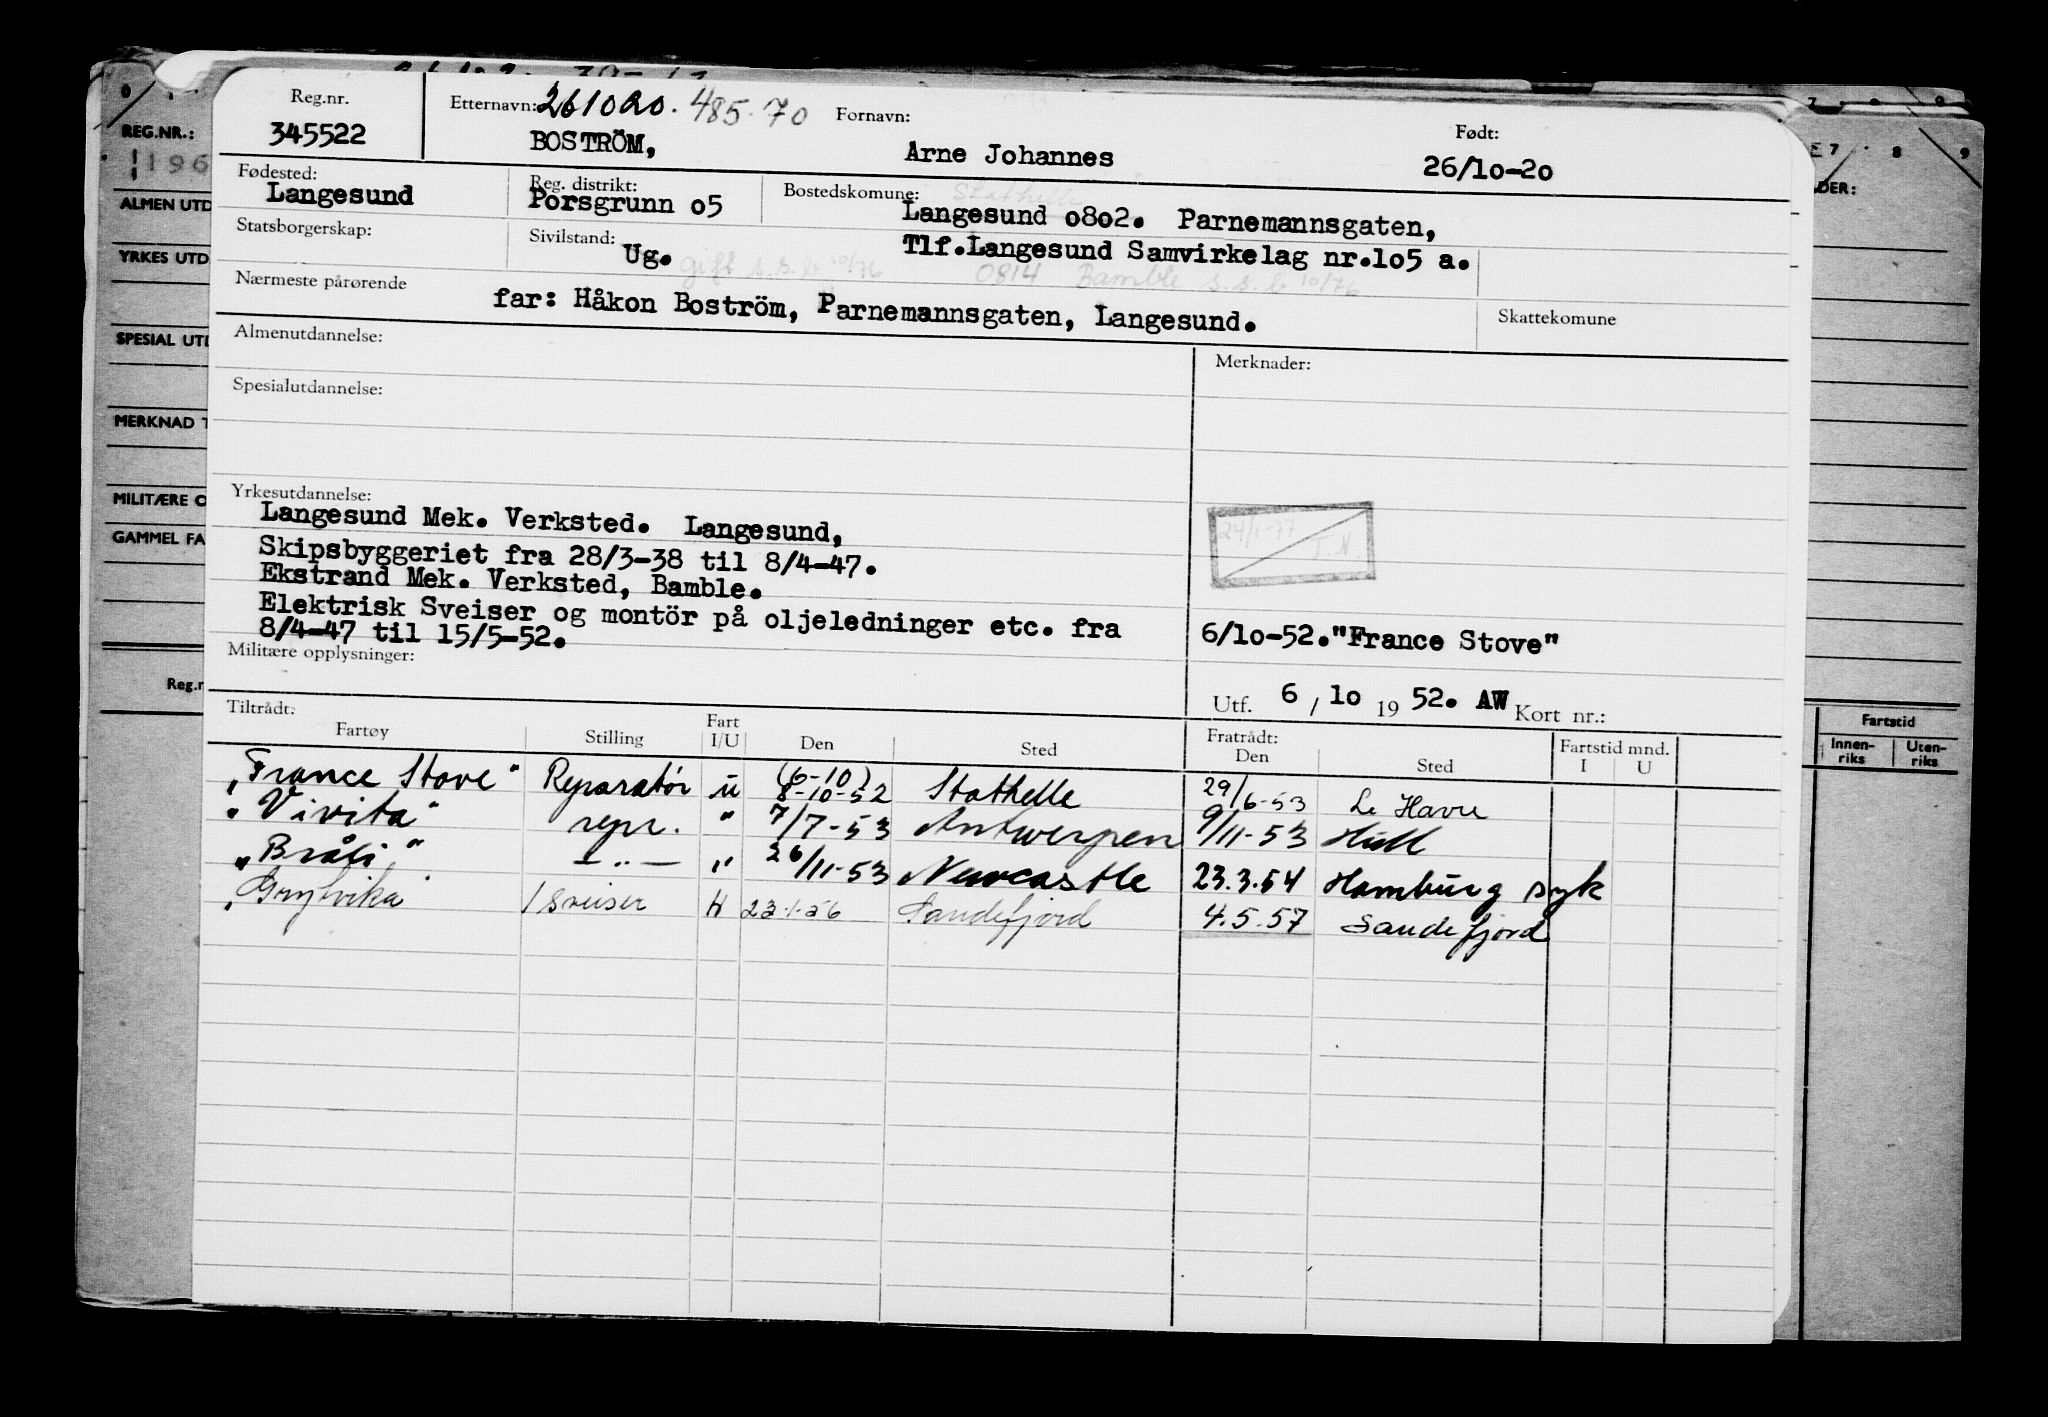 Reg.nr. Etternavn: 261020. 485.70 Fornavn: Født:
345522 BOSTRÖM, Arne Johannes 26/10-20
Fødested: Reg. distrikt: Bostedskomune: Stathelle
Langesund Porsgrunn 05 Langesund 0802. Parnemannsgaten,
Statsborgerskap: Sivilstand: Ug. Tlf.Langesund Samvirkelag nr.105 a.
gift s.s.b 10/76 0814 Bamble s.s.b 10/76
Nærmeste pårørende far: Håkon Boström, Parnemannsgaten, Langesund. Skattekomune
Almenutdannelse: Merknader:
Spesialutdannelse:
Yrkesutdannelse:
Langesund Mek. Verksted. Langesund,
Skipsbyggeriet fra 28/3-38 til 8/4-47.
Ekstrand Mek. Verksted, Bamble.
Elektrisk Sveiser og montör på oljeledninger etc. fra
8/4-47 til 15/5-52.
24/1-77 T.N.
6/10-52."France Stove"
Militære opplysninger:
Utf. 6 / 10 19 52. AW Kort nr.:
Tiltrådt: Fratrådt:
Fartøy Stilling Fart I/U Den Sted Den Sted Fartstid mnd. I U
"France Stove" Reparatør u (6-10) 8-10-52 Stathelle 29/6-53 Le Havre
"Vivita" repr. " 7/7-53 Antwerpen 9/11-53 Hull
"Bråli" — " — " 26/11-53 Newcastle 23.3.54 Hamburg syk
"Grytvika" / Sveiser H 23-1-56 Sandefjord 4.5.57 Sandefjord
REG.NR.:
196
ALMEN UTD
YRKES UTD
SPESIAL UTD
MERKNAD T
MILITÆRE O
GAMMEL FA
Reg.n
7 8 9
DER:
Fartstid
Innen-riks Uten-riks